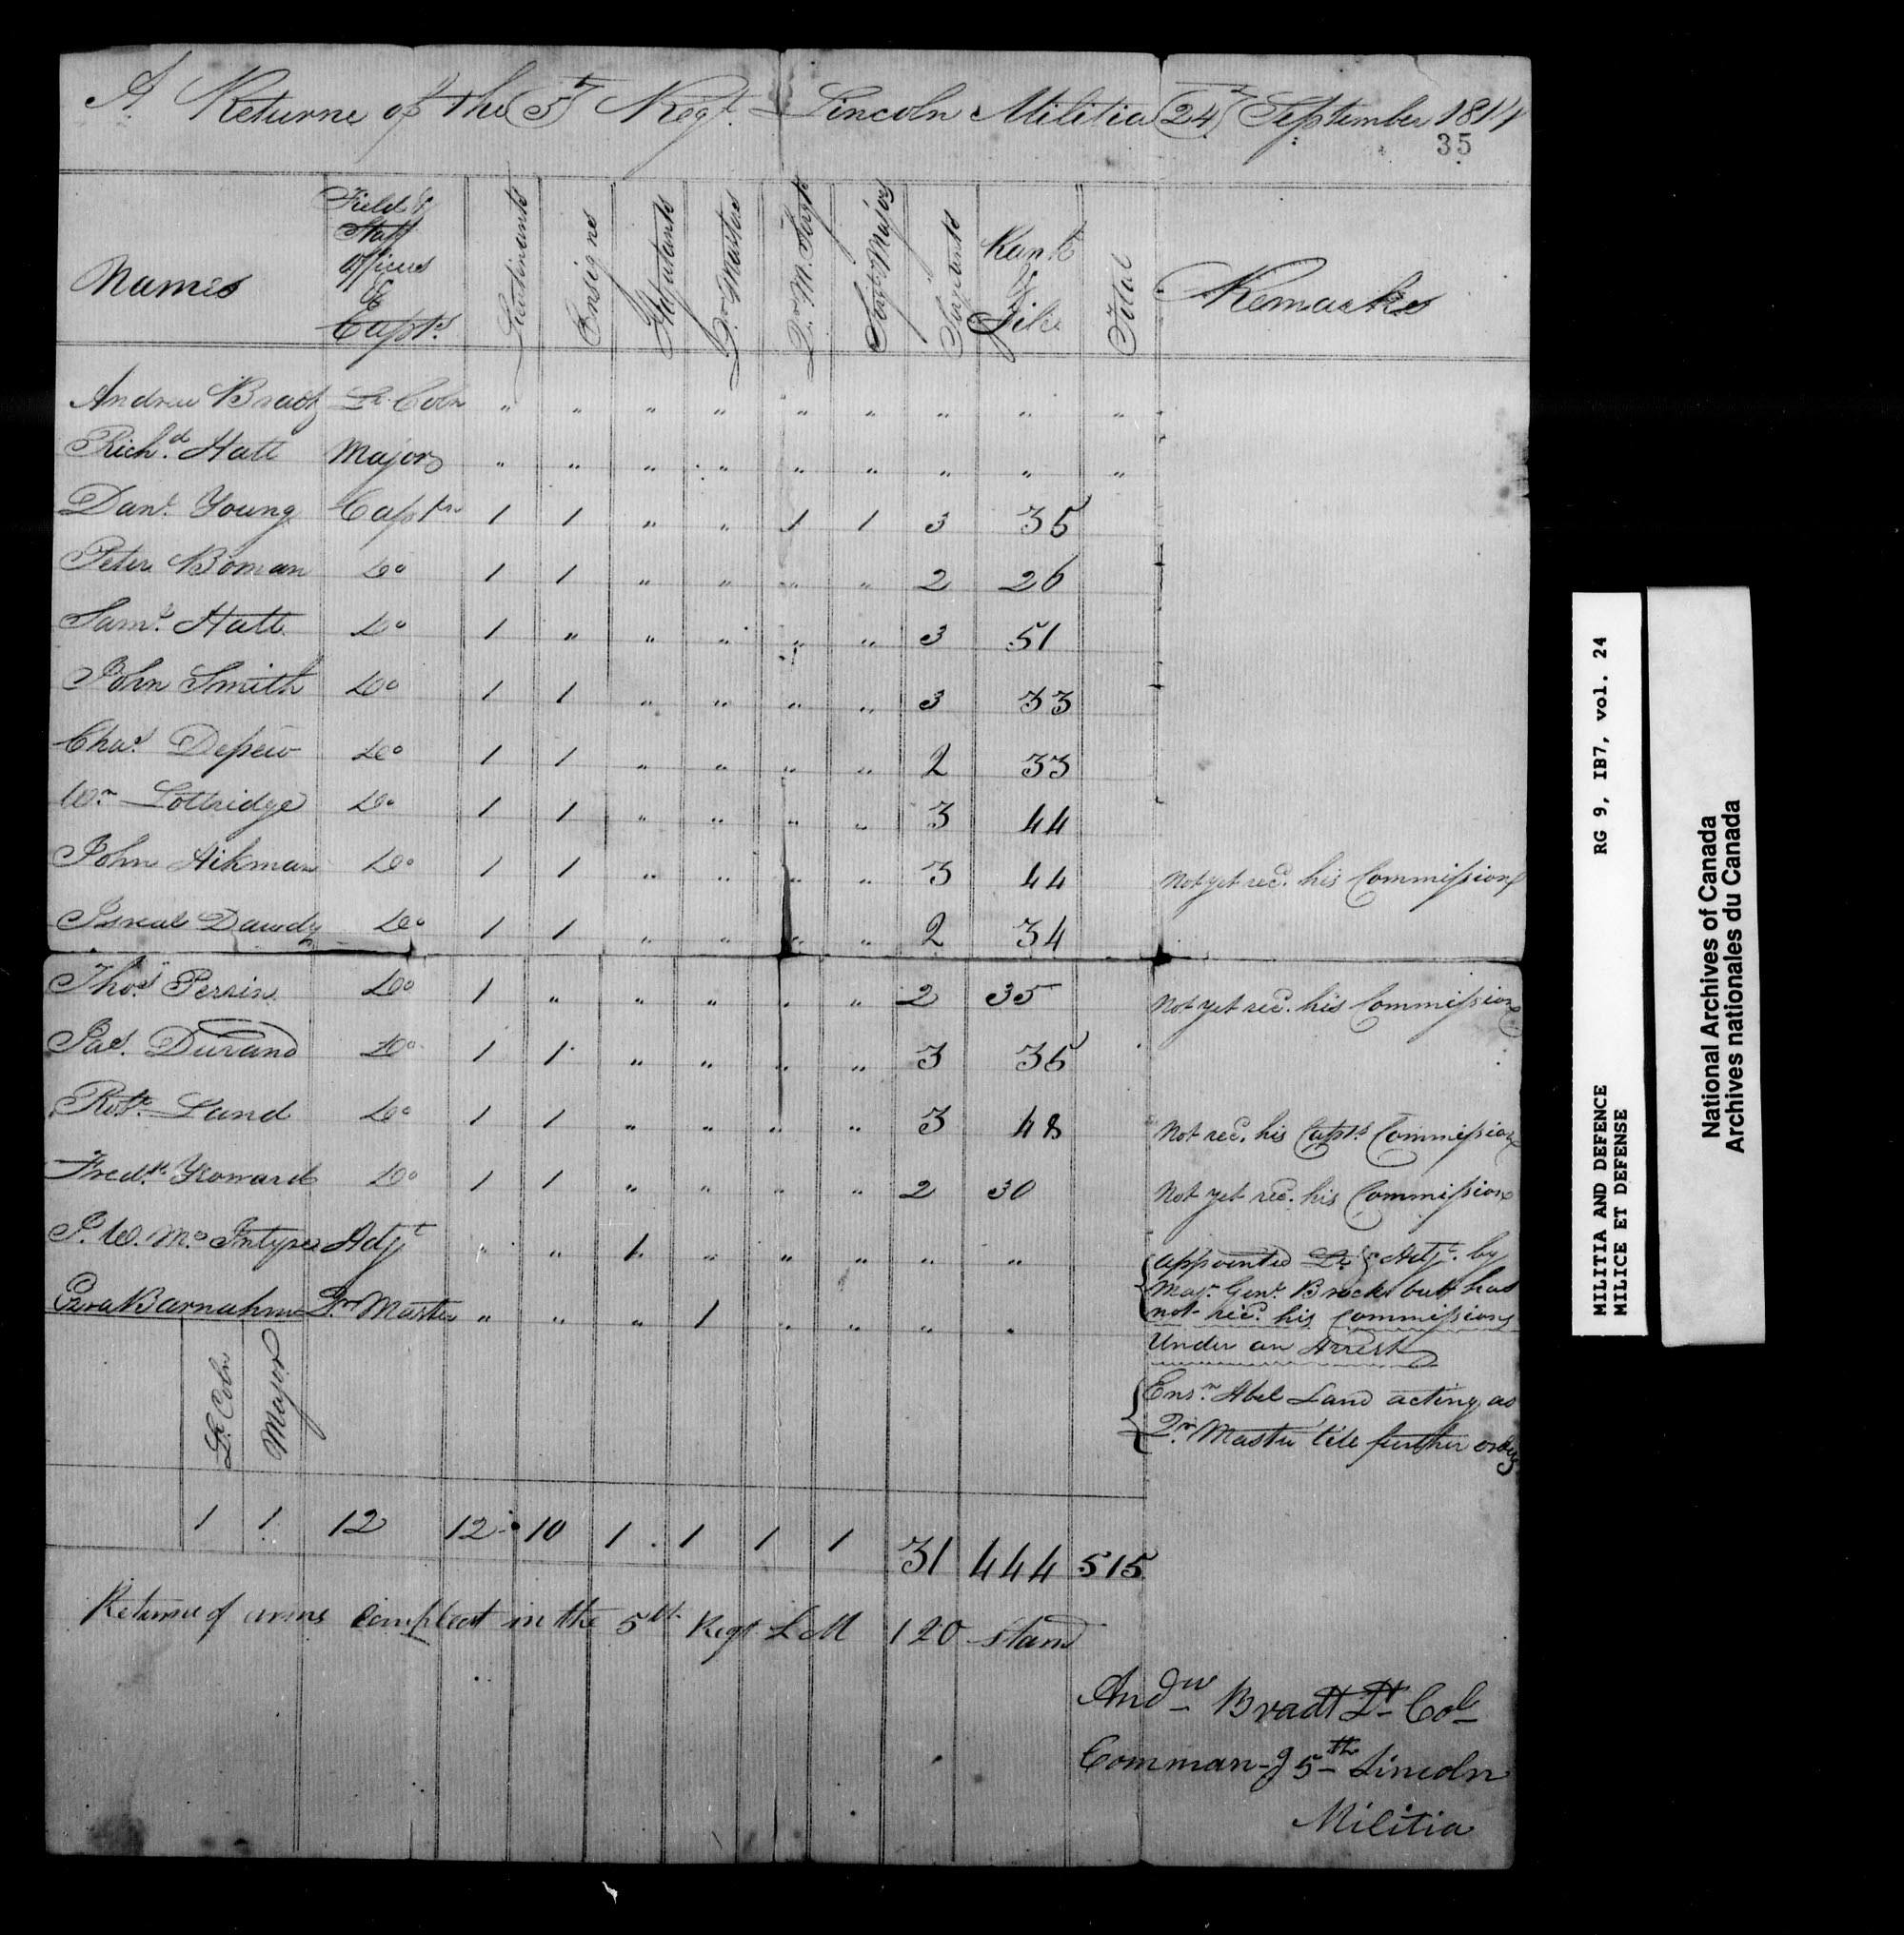 A Returne of the 5t Regt Lincoln Militia 24th September 1814
35
Names
Field &
Staff
Officers
&
Capts
Lieutinants
Ensignes
Adjutants
Qr Masters
Qr M. Sergts
Sergt Majors
Sergeants
Rank
&
File
Total
Remarks
Andrew Bradt Lt Coln " " " " " " " " "
Richd Hatt Major " " " " " " " " "
Danl Young Captn 1 1 " " 1 1 3 35
Peter Boman Do 1 1 " " " " 2 26
Saml Hatt Do 1 " " " " " 3 51
John Smith Do 1 1 " " " " 3 33
Chas Depew Do 1 1 " " " " 2 33
Wm Lottridge Do 1 1 " " " " 3 44
John Aikman Do 1 1 " " " " 3 44 Not yet recd. his Commission
Isreal Dawdy Do 1 1 " " " " 2 34
Thos Perrin Do 1 " " " " " 2 35 Not yet recd. his Commission
Jas. Durand Do 1 1 " " " " 3 36
Robt Land Do 1 1 " " " " 3 48 Not recd. his Capts Commission
Fredk Yeoward Do 1 1 " " " " 2 30 Not yet recd. his Commission
J. W. Mc Intyre Adjt " " 1 " " " " "
appointed Lt & Adjt. by
Majr Genl Brock but has
not recd. his Commission
Ezra Barnahm Qr Master " " " 1 " " " "
Under an Arrest
Ensn Abel Land acting as
Qr Master till further orders
Lt Coln
Major
1 1 12 12 10 1 1 1 1 31 444 515
Returne of arms Compleat in the 5th Regt L M 120 stand
Andw Bradt Lt Col
Comman-g 5th Lincoln
Militia
MILITIA AND DEFENCE RG 9, IB7, vol. 24
MILICE ET DEFENSE
National Archives of Canada
Archives nationales du Canada